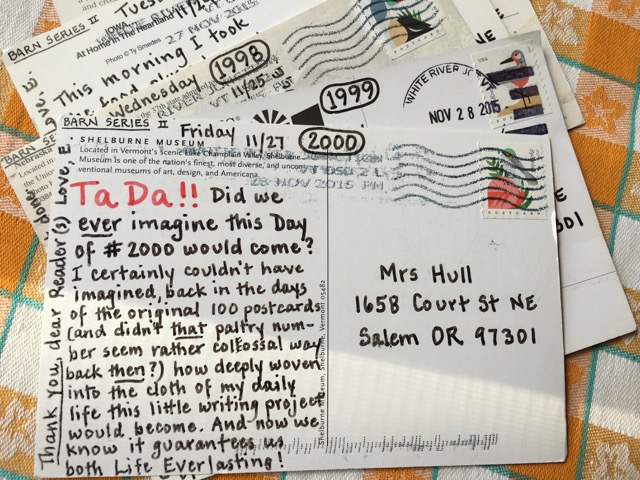 BARN SERIES II
IOWA
Tuesday
At Home in The Heartland
Photo © Ty Smedes
27 NOV 2015
This morning I took
BARN SERIES II
Wednesday
11/25
1998
1999
WHITE RIVER
NOV 28 2015
USA
BARN SERIES II
Friday 11/27
2000
• SHELBURNE MUSEUM
Located in Vermont's scenic Lake Champlain Valley, Shelburne
Museum is one of the nation's finest, most diverse, and uncon-
ventional museums of art, design, and Americana.
28 NOV 2015 PM
POSTCARD
TaDa!! Did we
ever imagine this Day
of # 2000 would come?
I certainly couldn't have
imagined, back in the days
of the original 100 postcards
(and didn't that paltry num-
ber seem rather colossal way
back then?) how deeply woven
into the cloth of my daily
life this little writing project
would become. And now we
know it guarantees us
both Life Everlasting!
Thank You, dear Reader(s) Love, E.
Shelburne Museum, Shelburne, Vermont 05482
Mrs Hull
1658 Court St NE
Salem OR 97301
NE
301